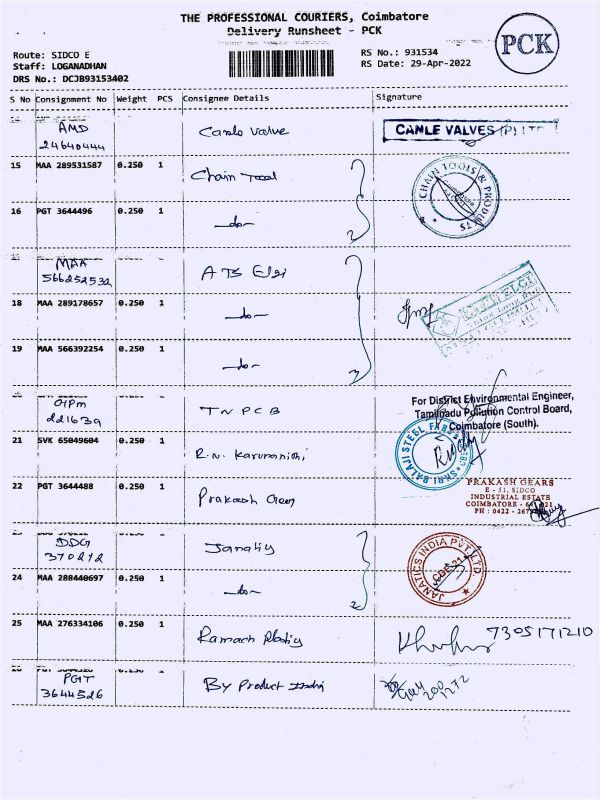 THE PROFESSIONAL COURIERS, Coimbatore
Delivery Runsheet - PCK
PCK
Route: SIDCO E
Staff: LOGANADHAN
DRS No.: DCJB93153402
RS No.: 931534
RS Date: 29-Apr-2022
S No Consignment No Weight PCS Consignee Details Signature
AMD
24640444 Canle Valve CANLE VALVES (P) LTD
15 MAA 289531587 0.250 1 Chain Tool CHAIN TOOLS & PRODUCTS
16 PGT 3644496 0.250 1 -do- 2
MAA
566252532 ATS Elgi
18 MAA 289178657 0.250 1 -do- ATS ELGI
19 MAA 566392254 0.250 1 -do- 3
221639 TNPCB
For District Environmental Engineer,
Tamilnadu Pollution Control Board,
Coimbatore (South).
21 SVK 65049604 0.250 1 R.N. Karunanithi SHRI BALAJI STEEL FABS
22 PGT 3644488 0.250 1 Prakash Gears
PRAKASH GEARS
E - 51, SIDCO
INDUSTRIAL ESTATE
COIMBATORE - 641021
PH : 0422 - 267
DDG
370212 Janatiy JANATICS INDIA PVT. LTD. CBE-21
24 MAA 288440697 0.250 1 -do- 2
25 MAA 276334106 0.250 1 7305171210
PGT
3644526 By Product India